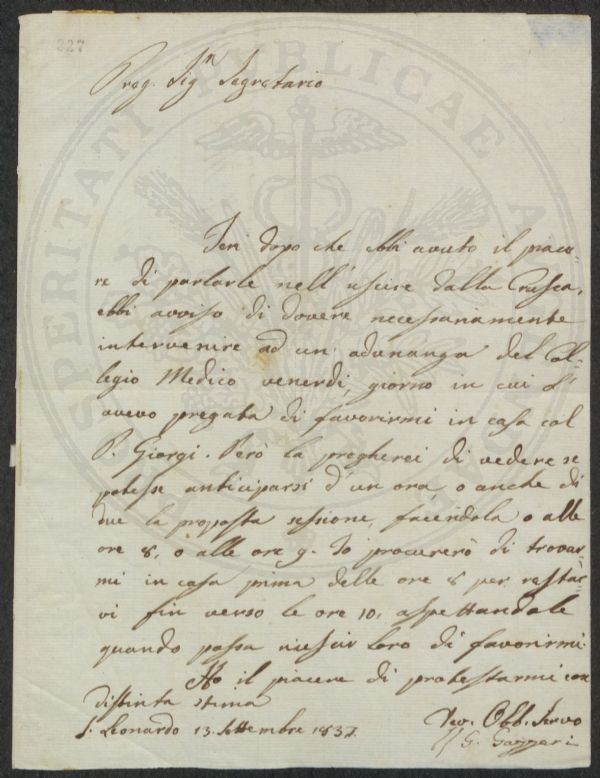 827
Preg. Sigⁿ Segretario
Jeri dopo che ebbi avuto il piace-
re di parlarle nell'uscire dalla Crusca,
ebbi avviso di dovere necessariamente
intervenire ad un'adunanza del Col-
legio Medico venerdì, giorno in cui l'
avevo pregata di favorirmi in casa col
P. Giorgi. Però la pregherei di vedere se
potesse anticiparsi d'un ora, o anche di
due la proposta sessione, facendola o alle
ore 8, o alle ore 9. Io procurerò di trovar-
mi in casa prima delle ore 8 per restar-
vi fin verso le ore 10, aspettandole
quando possa riescir loro di favorirmi.
Ho il piacere di protestarmi con
distinta stima
S. Leonardo 13. Settembre 1837.
Dev. Obb. Servo
G. Gazzeri
PROSPERITATI PUBLICAE